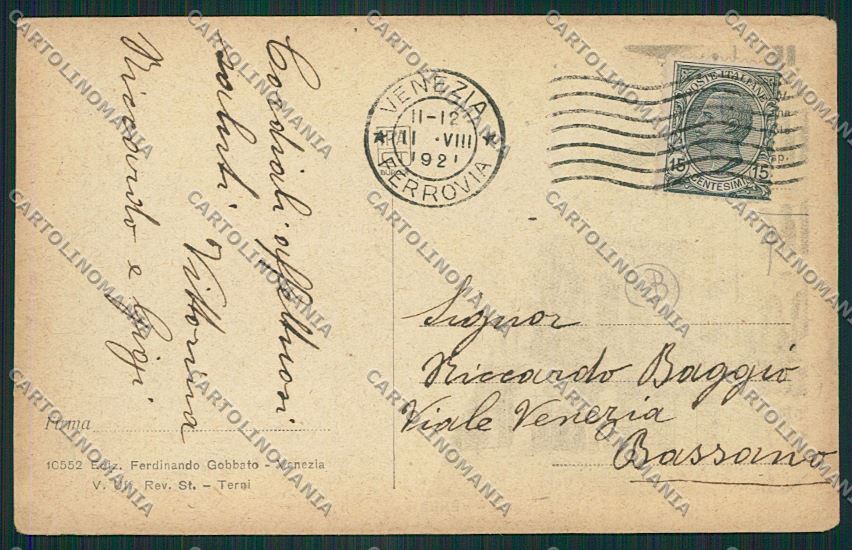 Cordiali affettuosi
saluti
Vittorina
Riccardo e Gigi
Firma
10552 Ediz. Ferdinando Gobbato - Venezia
V. Uff. Rev. St. - Terni
VENEZIA
11-12
11 · VIII
192
FERROVIA
POSTE ITALIANE
15 15
CENTESIMI
Signor
Riccardo Baggio
Viale Venezia
Bassano
CARTOLINOMANIA